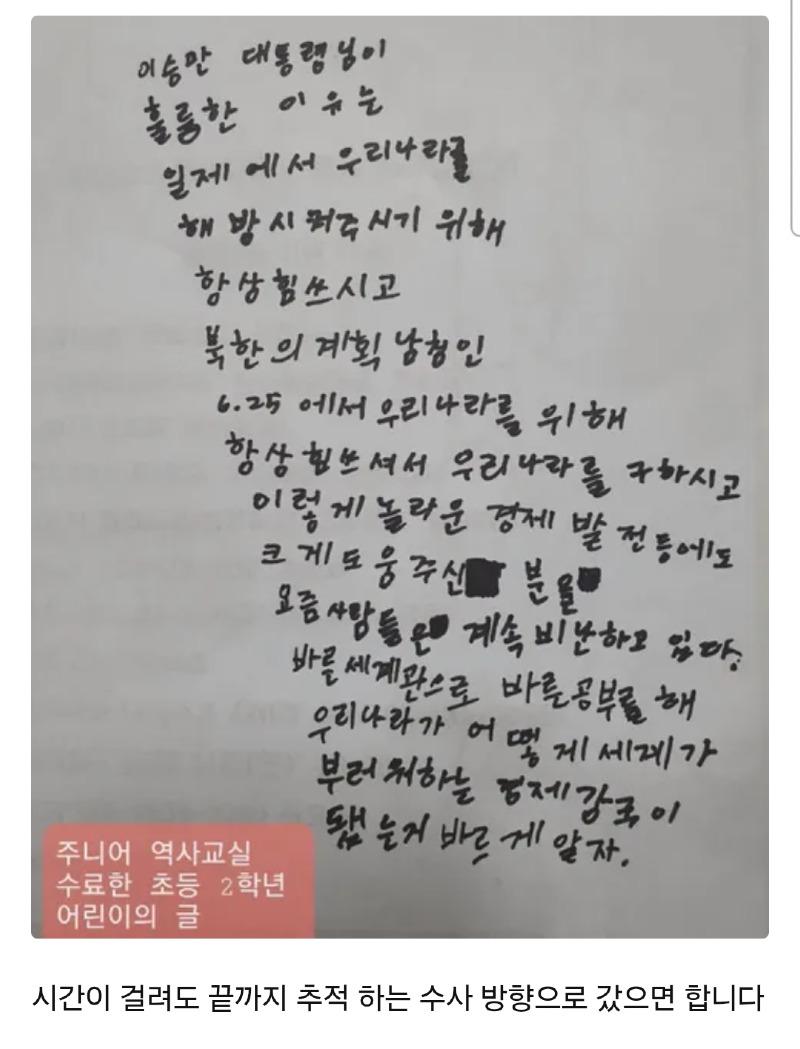 이승만 대통령님이
훌륭한 이유는
일제에서 우리나라를
해방시켜주시기 위해
항상힘쓰시고
북한의 계획남침인
6.25 에서 우리나라를 위해
항상 힘쓰셔서 우리나라를 구하시고
이렇게 놀라운 경제 발전등에도
크게 도움주신 분을
요즘사람들은 계속 비난하고 있다.
바를세계관으로 바른공부를 해
우리나라가 어떻게 세계가
부러워하는 경제강국이
됐는지 바르게 알자.
주니어 역사교실
수료한 초등 2학년
어린이의 글
시간이 걸려도 끝까지 추적 하는 수사 방향으로 갔으면 합니다